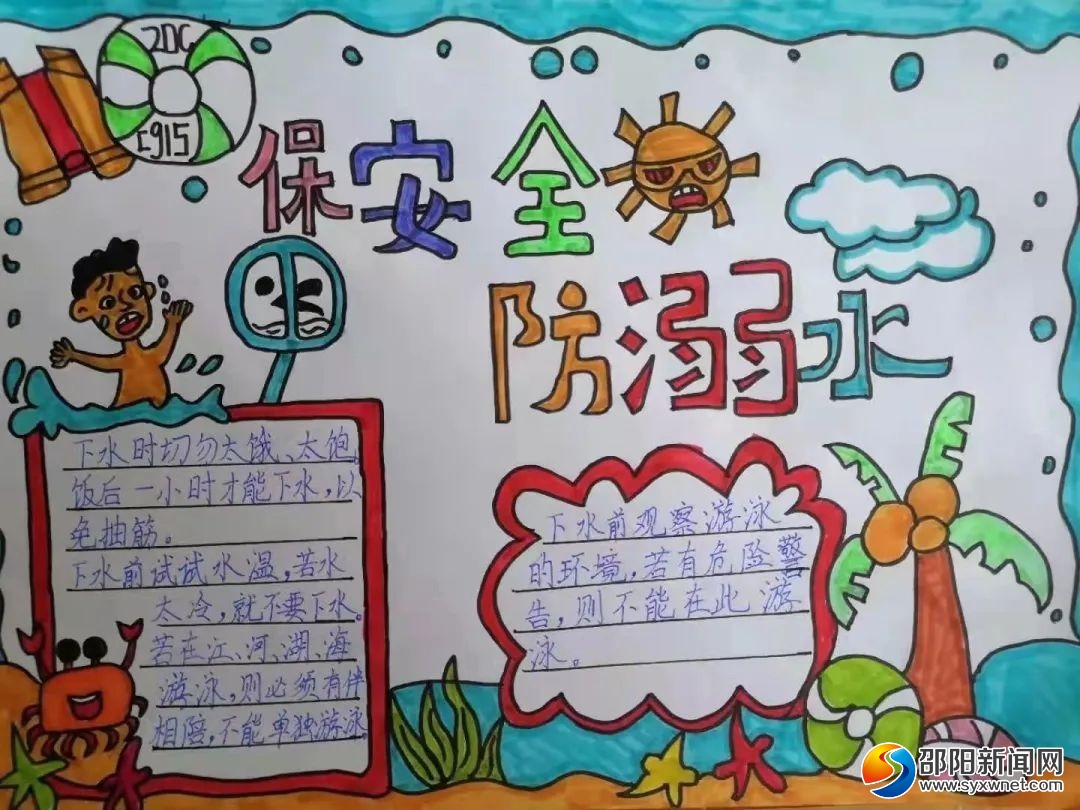 2DC
C915
保安全
防溺水
下水时切勿太饿、太饱。
饭后一小时才能下水，以
免抽筋。
下水前试试水温，若水
太冷，就不要下水。
若在江、河、湖、海
游泳，则必须有伴
相陪，不能单独游泳。
下水前观察游泳
的环境，若有危险警
告，则不能在此游
泳。
邵阳新闻网
www.syxwnet.com